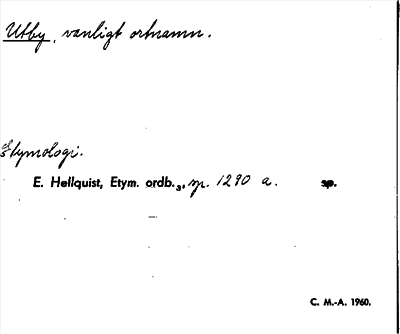 Utby, vanligt ortnamn.
Etymologi.
E. Hellquist, Etym. ordb.₃, sp. 1290 a. sp.
C. M.-A. 1960.